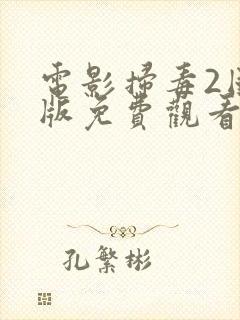 電影掃毒2
版免費觀看
孔繁彬